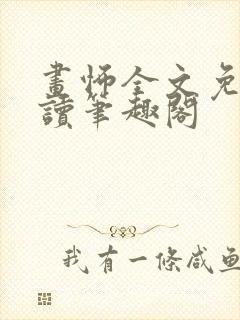 畫师全文免
讀筆趣閣
我有一條咸鱼